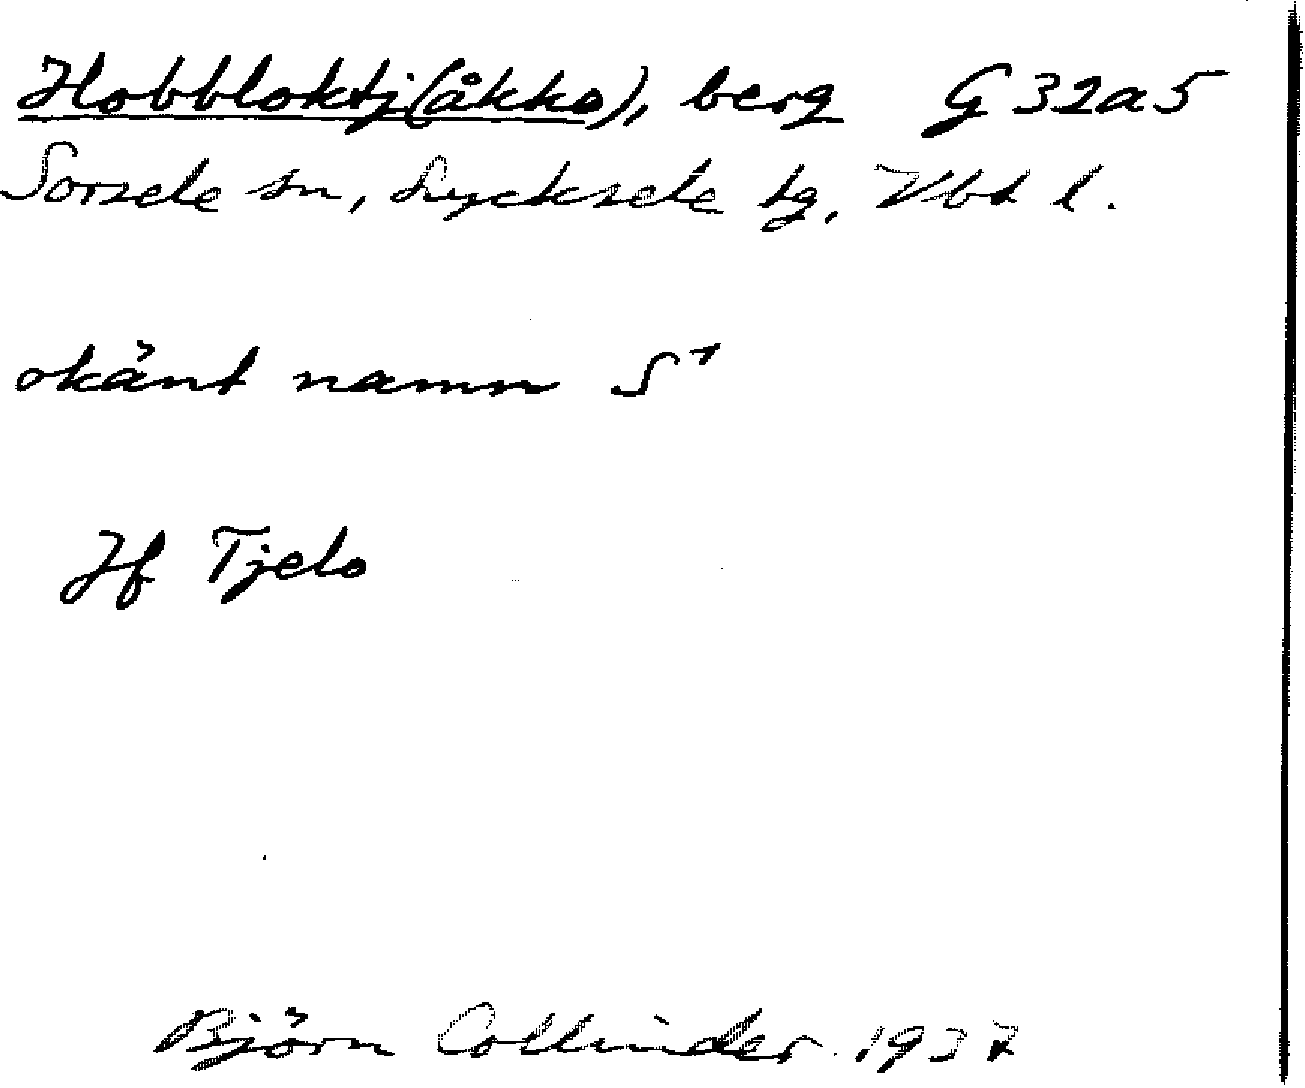 Hobbloktj(åkko), berg G 32a5
Sorsele sn, Lycksele tg, Vbt l.
okänt namn S⁺
Jf Tjelo
Björn Collinder 1937